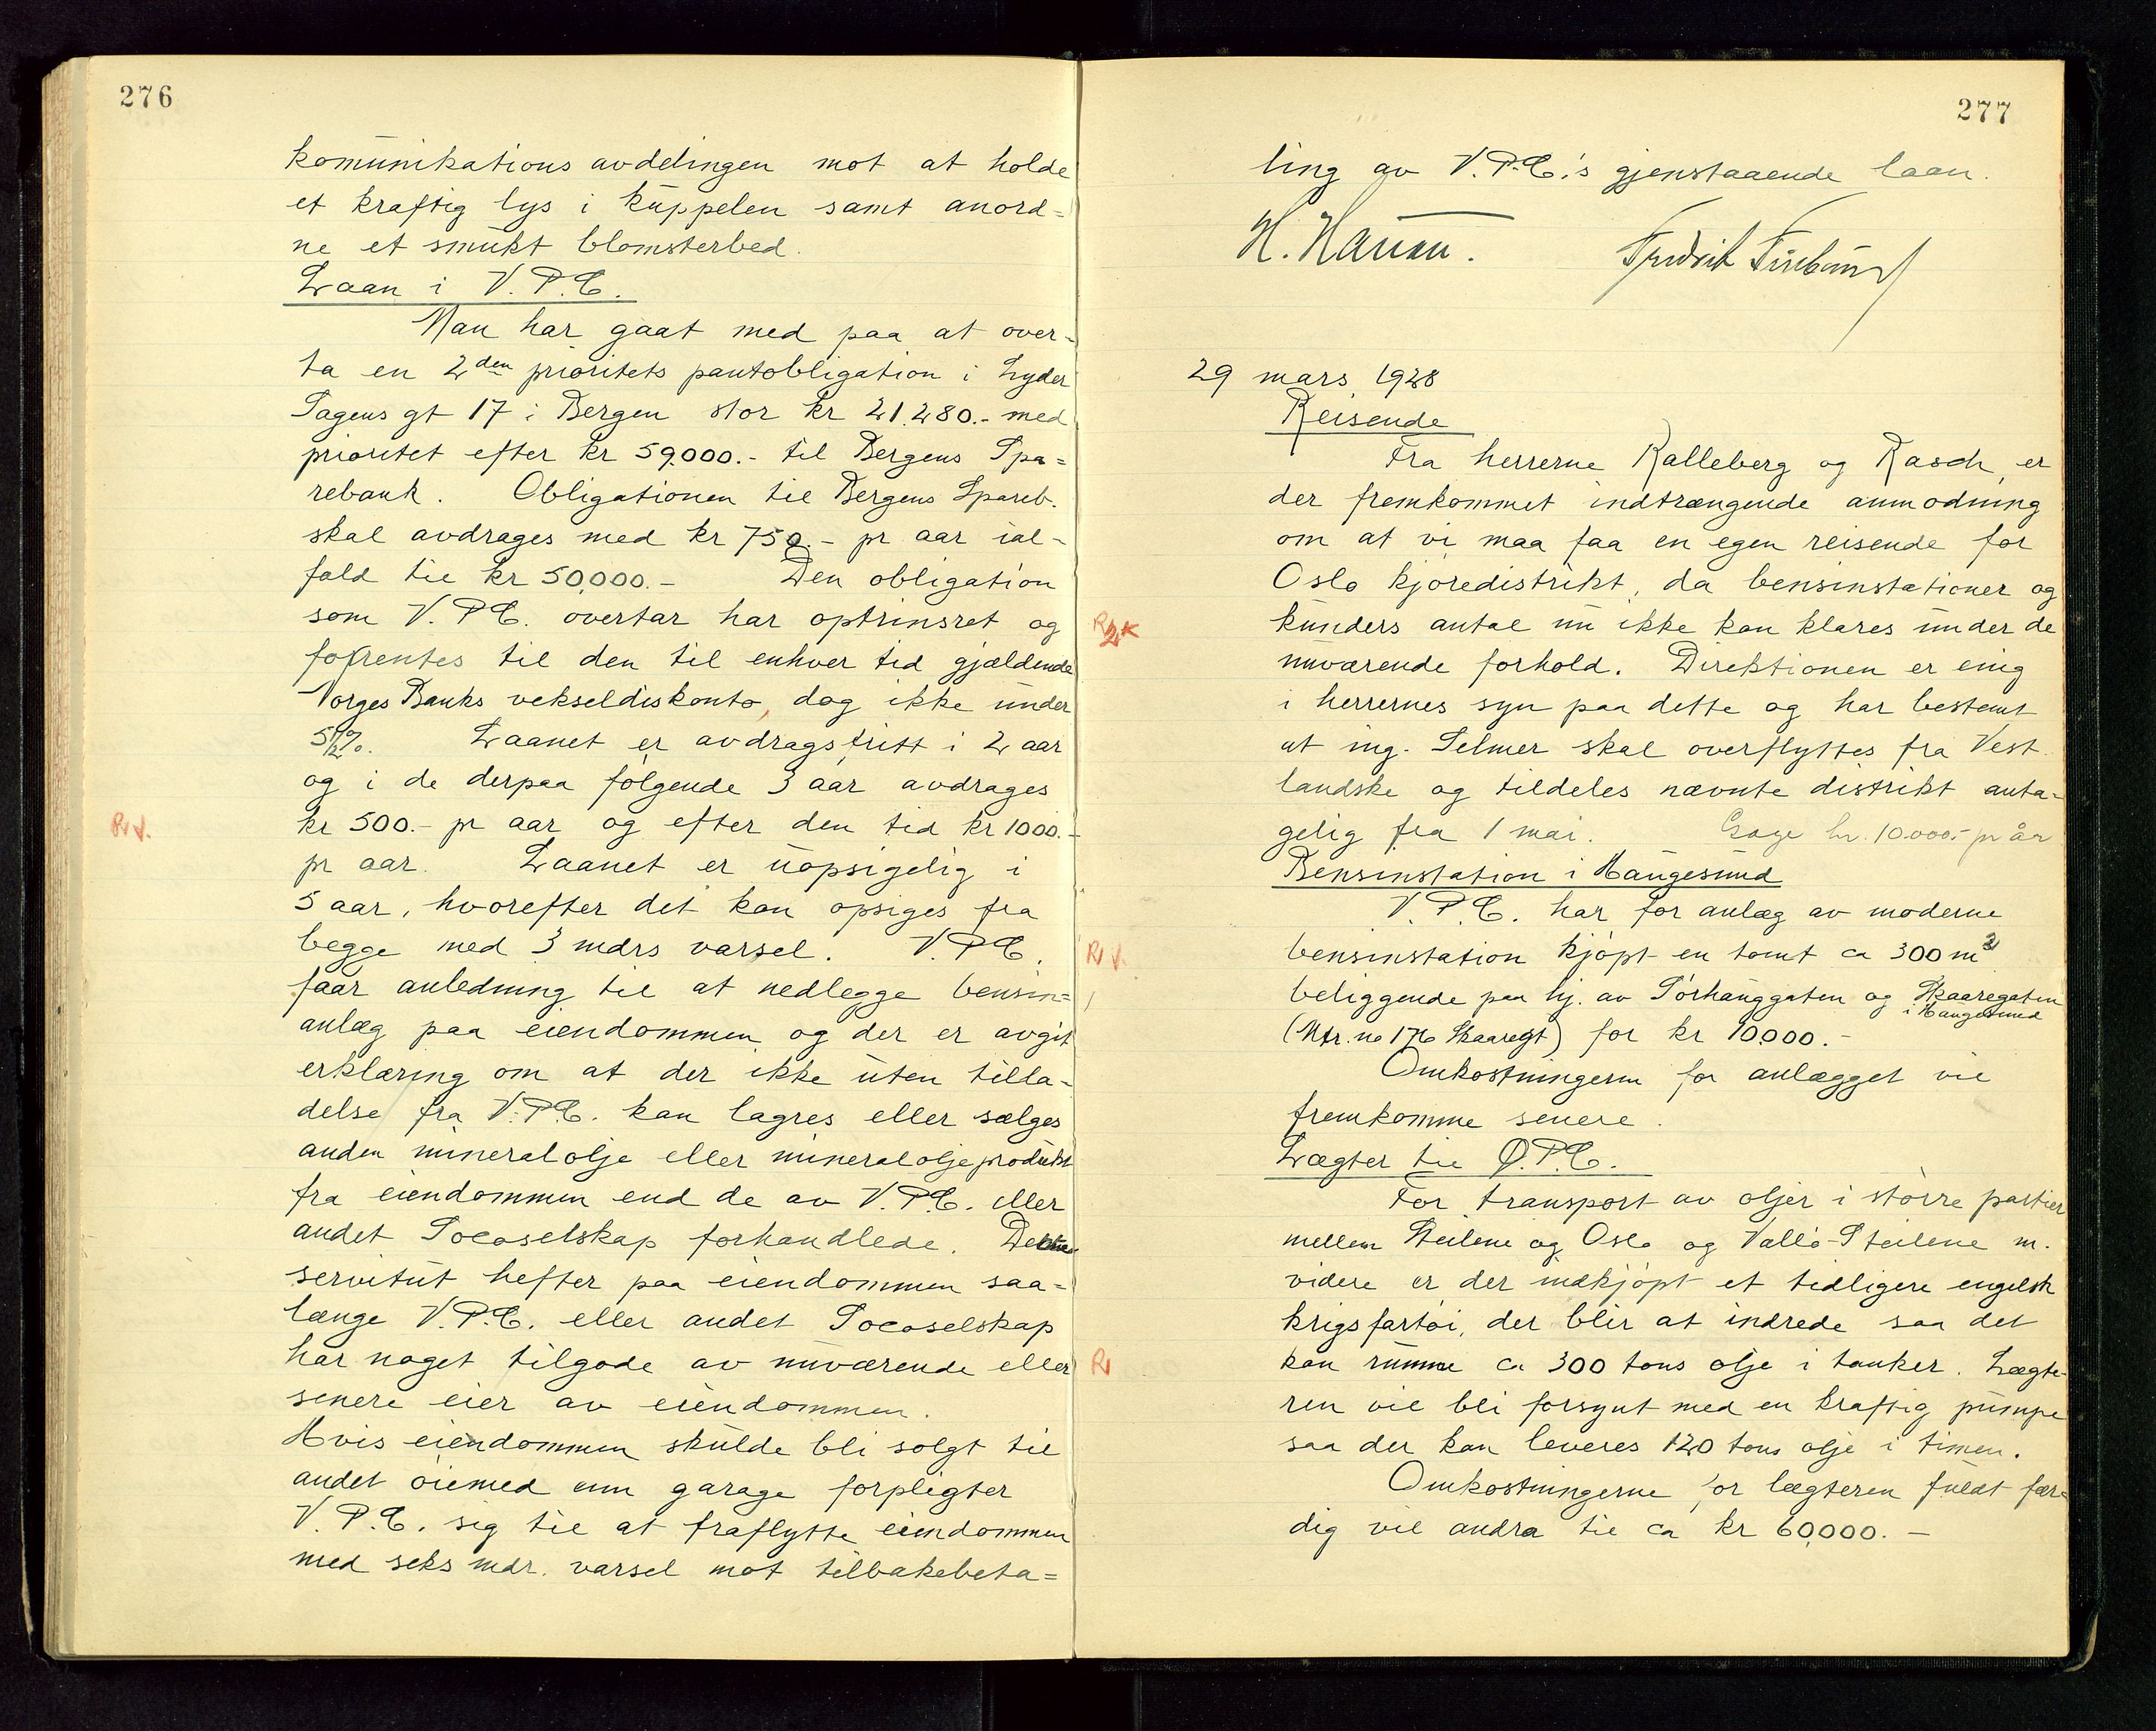 276
komunikations avdelingen mot at holde
et kraftig lys i kuppelen samt anord=
ne et smukt blomsterbed.
Laan i V.P.C.
Man har gaat med paa at over-
ta en 2den prioritets pantobligation i Lyder
Sagens gt 17 i Bergen stor kr 21.280.- med
prioritet efter kr 59.000.- til Bergens Spa=
rebank. Obligationen til Bergens Spareb.
skal avdrages med kr 750.- pr aar ial-
fald til kr 50.000.- Den obligation
som V.P.C. overtar har optrinsret og
forrentes til den til enhver tid gjældende
Norges Banks vekseldiskonto, dog ikke under
5 1/2 %. Laanet er avdragsfritt i 2 aar
og i de derpaa følgende 3 aar avdrages
Rv.
kr 500.- pr aar og efter den tid kr 1000.-
pr aar. Laanet er uopsigelig i
5 aar, hvorefter det kan opsiges fra
begge med 3 mdrs varsel. V.P.C.
faar anledning til at nedlegge bensin=
anlæg paa eiendommen og der er avgit
erklæring om at der ikke uten tilla-
delse fra V.P.C. kan lagres eller sælges
anden mineralolje eller mineraloljeprodukt
fra eiendommen end de av V.P.C. eller
andet Socoselskap forhandlede. Denne
servitut hefter paa eiendommen saa=
længe V.P.C. eller andet Socoselskap
har noget tilgode av nuværende eller
senere eier av eiendommen.
Hvis eiendommen skulde bli solgt til
andet øiemed enn garage forpligter
V.P.C. sig til at fraflytte eiendommen
med seks mdr. varsel mot tilbakebeta=
277
ling av V.P.C.'s gjenstaaende laan.
H. Hansen.
29 mars 1928
Reisende
Fra herrerne Kalleberg og Rasch er
der fremkommet indtrængende anmodning
om at vi maa faa en egen reisende for
Oslo kjøredistrikt, da bensinstationer og
kunders antal nu ikke kan klares under de
nuværende forhold. Direktionen er enig
i herrernes syn paa dette og har bestemt
at ing. Selmer skal overflyttes fra Vest-
landske og tildeles nævnte distrikt anta-
gelig fra 1 mai. Gage kr. 10.000.- pr år
Bensinstation i Haugesund
V.P.C. har for anlæg av moderne
Rv.
bensinstation kjøpt en tomt ca 300 m2
beliggende paa hj. av Sørhauggaten og Skaaregaten
i Haugesund
(Mtr. no 176 Skaaregt) for kr 10.000.-
Omkostningerne for anlægget vil
fremkomme senere.
Lægter til Ø.P.C.
For transport av oljer i større partier
mellem Steilene og Oslo og Vallø-Steilene m.
videre er der indkjøpt et tidligere engelsk
krigsfartøi, der blir at indrede saa det
R
kan rumme ca 300 tons olje i tanker. Lægte-
ren vil bli forsynt med en kraftig pumpe
saa der kan leveres 120 tons olje i timen.
Omkostningerne for lægteren fuldt fær=
dig vil andra til ca kr 60.000.-